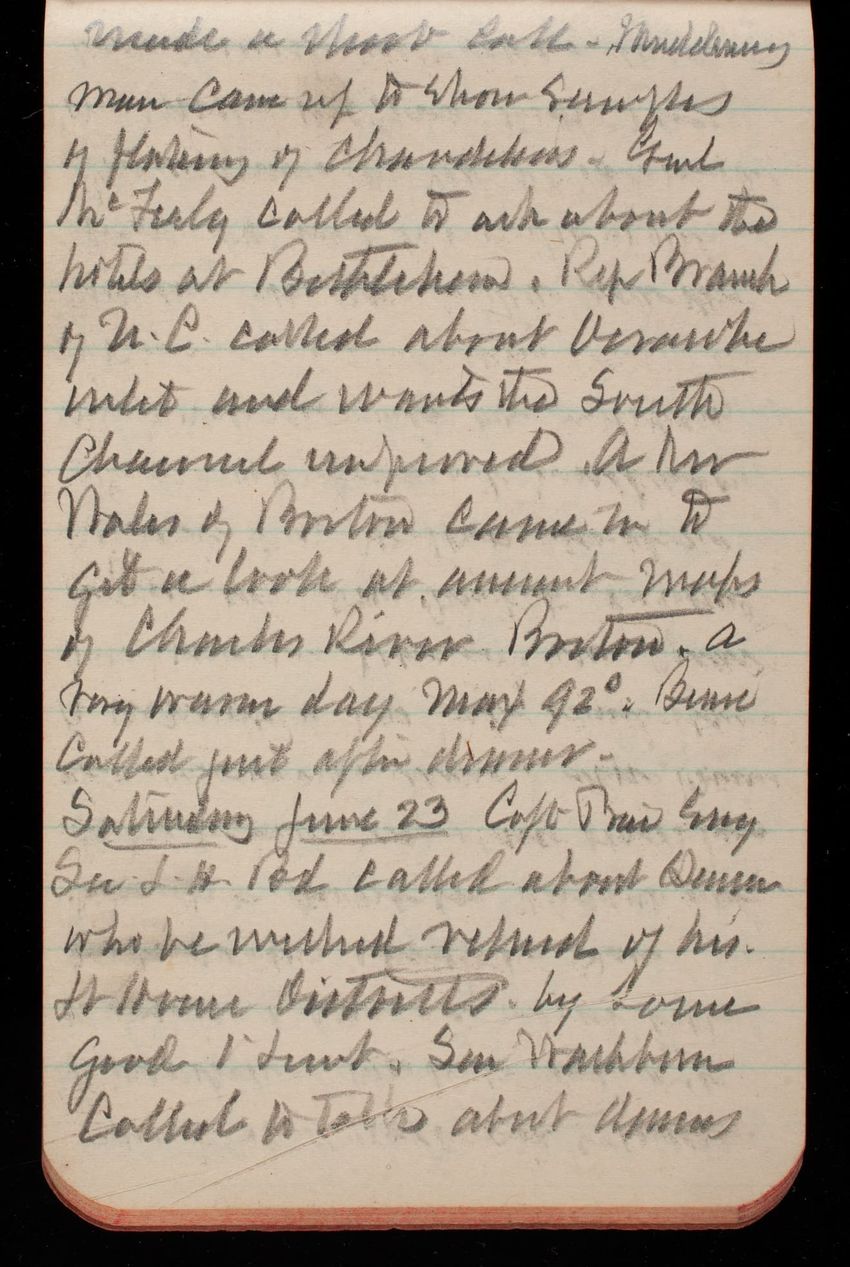 made a short call.
man came up to show samples
of plating of chandeliers. Genl
McFeely called to ask about the
hotels at Bethlehem. Rep Branch
of N. C. called about Ocracoke
inlet and wants the South
Channel improved. A Mr
Wales of Boston came in to
get a look at ancient maps
of Charles River Boston. A
very warm day Max 92°. Bessie
called just after dinner.
Saturday June 23 Capt
Sec L. H. Bd called about
who he wished relieved of his
Lt House Districts. by some
good 1st Lieut. Sen Washburn
called to talk about